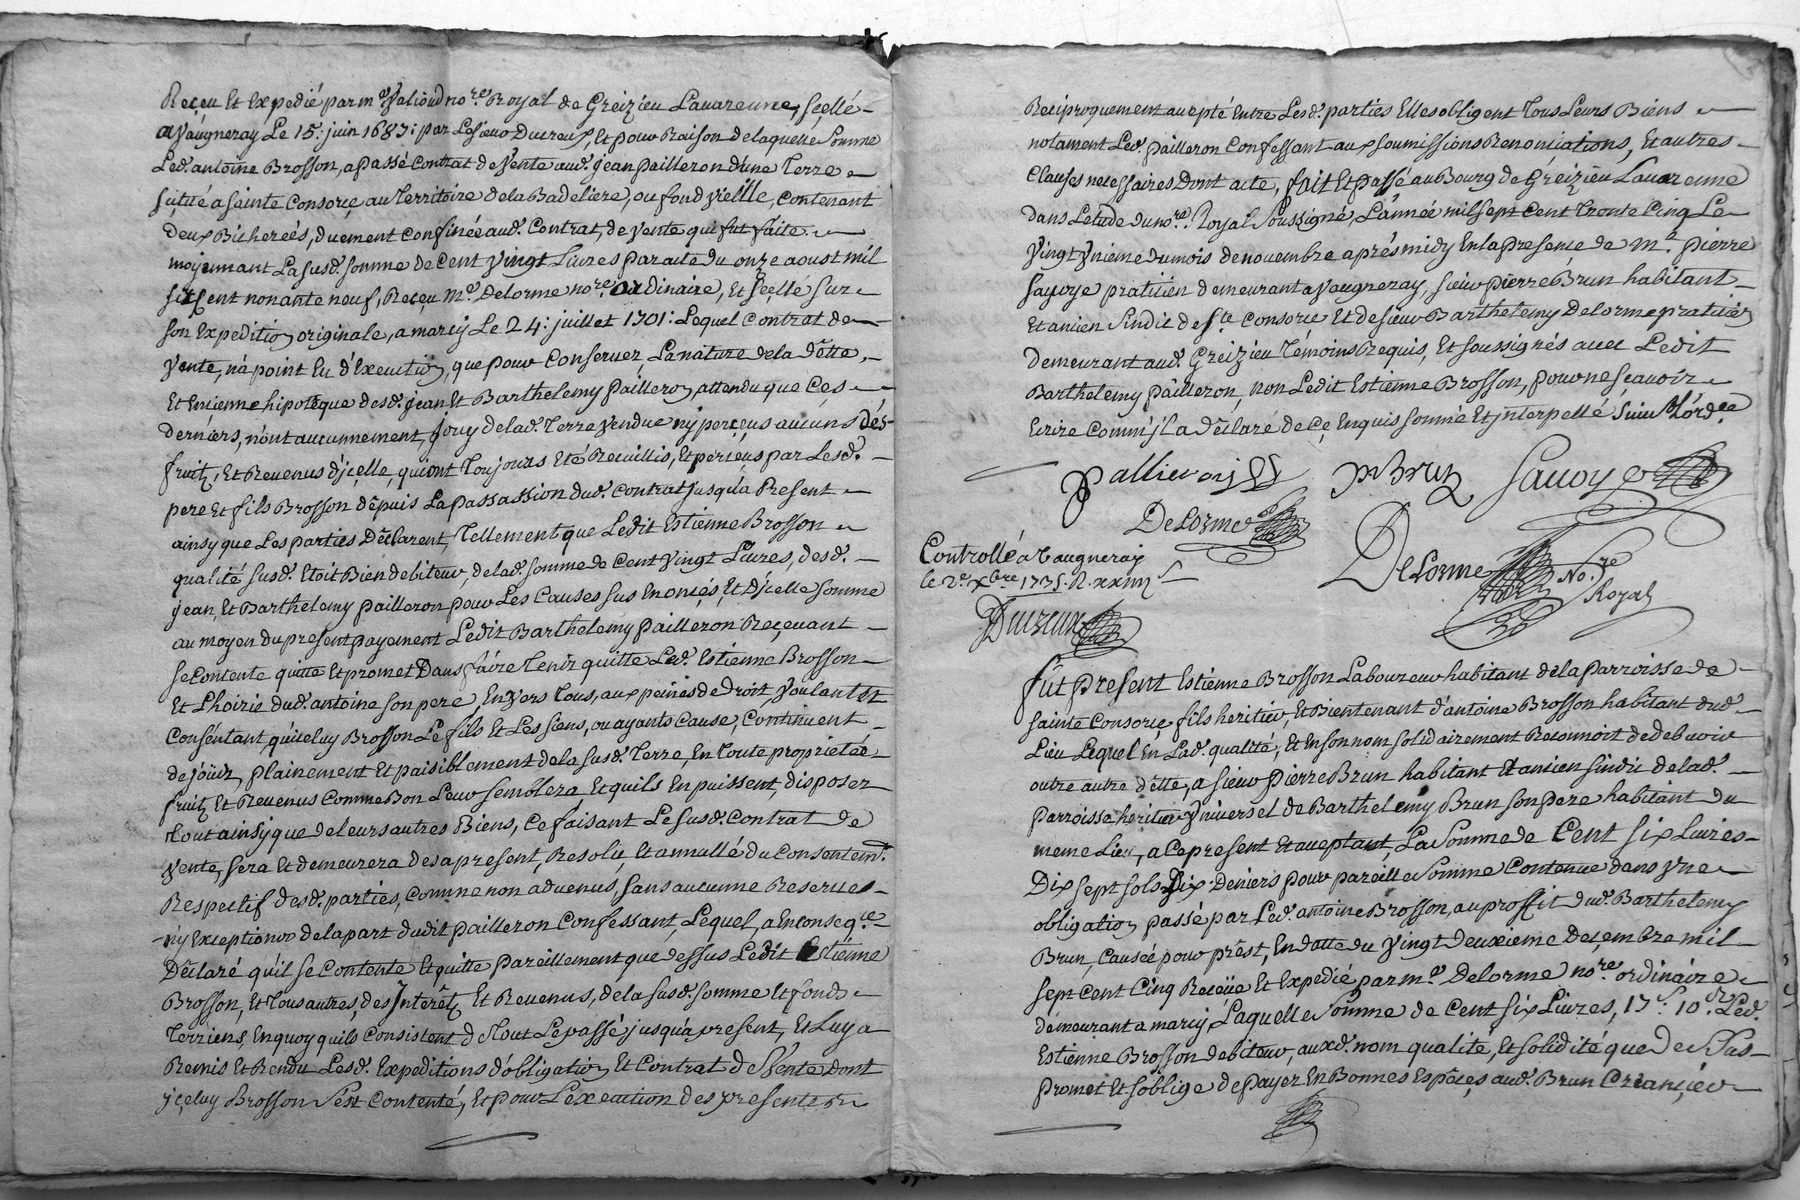 Reçeu Et Expedié par me valioud no.re Royal de Greizieu Lavarenne, sçellé
a Vaugneray Le 15: juin 1687: par Lesieur Ducreux, Et pour Raison de laquelle somme
Led. antoine Brosson, a passé Contrat de Vente aud. jean pailleron d'une Terre
sçituée a sainte Consorçe au Territoire de la Badeliere, ou fond vieille, contenant
deux Bicherées, duement confinée aud. Contrat, de vente qui fut faite
moyennant La susd. somme de cent vingt Livres par acte du onze aoust mil
six cent nonante neuf, Reçeu me. Delorme no.re ordinaire, Et sçellé sur
son Expedition originale, a marcy Le 24: juillet 1701: Lequel Contrat de
vente, n'a point Eu d'Execution, que pour Conserver La nature de la dette,
Et Entienne hipoteque desd. jean Et Barthelemy pailleron, attendu que Ces
derniers, n'ont aucunnement, jouy de lad. Terre vendue ny perçeus aucuns des
fruits, Et Revenus d'jcelle, qui ont Toujours Eté Recuillis, Et perçeus par Lesd.
pere Et fils Brosson depuis La passassion dud. Contrat jusqu'a Present
ainsy que Les parties Declarent, Tellement que Ledit Estienne Brosson
qualité susd. Etoit Bien debiteur, de lad. somme de Cent vingt Livres, desd.
jean, Et Barthelemy pailleron pour Les Causes sus Enonçés, Et D'jcelle somme
au moyen du present payement Ledit Barthelemy pailleron Reçevant
se Contente quitte Et promet Dans faire Tenir quitte Led. Estienne Brosson
Et L'hoirie dud. antoine son pere, Envers Tous, aux peines de Droit, voulant Et
Consentant, qu'iceluy Brosson Le fils Et Les siens, ou ayants Cause, Continuent
de joüir, plainement Et paisiblement de la susd. Terre, En Toute proprietée
fruits, Et Revenus Comme Bon Leur semblera Et quils En puissent, disposer
Tout ainsy que de leurs autres Biens, Ce faisant Le susd. Contrat de
vente, sera Et demeurera des a present, Resolu, Et annullé du Consentemt.
Respectif desd. parties, Comme non advenus, sans aucunne Reserves
n'y Exception de la part dudit pailleron Confessant, Lequel, a Enconseq.ce
Declaré qu'il se Contente Et quitte pareillement que dessus Ledit Estienne
Brosson, Et Tous autres, des Interêts Et Revenus, de la susd. somme Et fonds
Terriens, En quoy quils Consistent de Tout Le passé, jusqu'a present, Et Luy a
Remis Et Rendu Lesd. Expeditions d'obligation Et Contrat de Vente dont
jçeluy Brosson S'est Contenté, Et pour L'execution des presentes
Reciproquement accepté Entre Lesd. parties Elles obligent Tous Leurs Biens
notament Led. pailleron Confessant aux soumissions Renonciations, Et autres
Clauses necessaires Dont acte, fait Et passé au Bourg de Greizieu Lavarenne
dans Letude du no.re Royal soussigné, L'année mil sept Cent Trente Cinq Le
Vingt Vnieme du mois de novembre aprés midy En la presence de Me. pierre
savoye pratitien demeurant a vaugneray, sieur pierre Brun habitant
Et antien sindic de ste Consorce Et de sieur Barthelemy Delorme pratitien
demeurant aud. Greizieu Témoins Requis, Et soussignés avec Ledit
Barthelemy pailleron, non Ledit Estienne Brosson, pour ne sçavoir
Ecrire Comm'jl a Declaré de Ce Enquis sommé Et jnterpellé suiv. L'ord.ce
pallieron pr Brun Savoye
Delorme
Controllé a Vaugneray
le 2e. Xbre 1735. R. xxiiij s
Delorme No.re Royal
Ducreux
fut present Estienne Brosson Laboureur habitant de la parroisse de
sainte Consorçe, fils heritier, Et Bientenant d'antoine Brosson habitant dud.
Lieu Lequel En Lad. qualité, Et En son nom solidairement Reconnoit de debvoir
outre autre dette, a sieur Pierre Brun habitant Et antien sindic de lad.
parroisse heritier Vniversel de Barthelemy Brun son pere habitant du
meme Lieu, a Ce present Et acceptant, La Somme de Cent six Livres
Dix sept sols Dix Deniers pour pareille somme Contenue dans Vne
obligation passé par Led. antoine Brosson, au proffit dud. Barthelemy
Brun, Causée pour prêst, En datte du Vingt Deuxieme Decembre mil
sept Cent Cinq Reçeüe Et Expedié par me. Delorme no.re ordinaire
demeurant a marcy Laquelle somme de Cent six Livres, 17 s. 10 d. Led.
Estienne Brosson debiteur, auxd. nom qualité, Et solidité que Dessus
promet Et s'oblige de payer En Bonnes Espêces aud. Brun Créancier